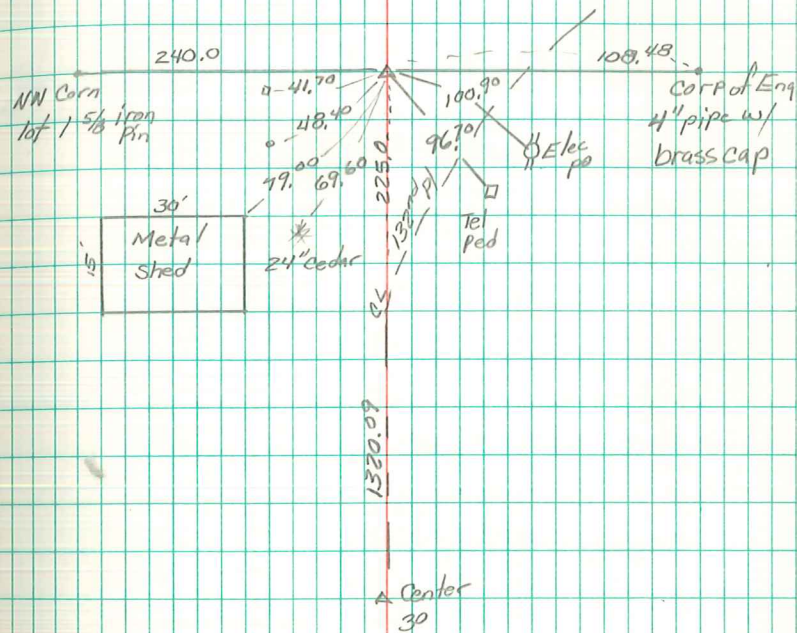 240.0
108.48
NW Corn
lot 1 5/8 iron
pin
Corp of Eng
4" pipe w/
brass cap
41.70
48.40
79.00
69.60
100.90
96.70
Elec
po
Tel
Ped
225.0
132nd pl
30'
15'
Metal
Shed
24" cedar
CL
1320.09
Center
30